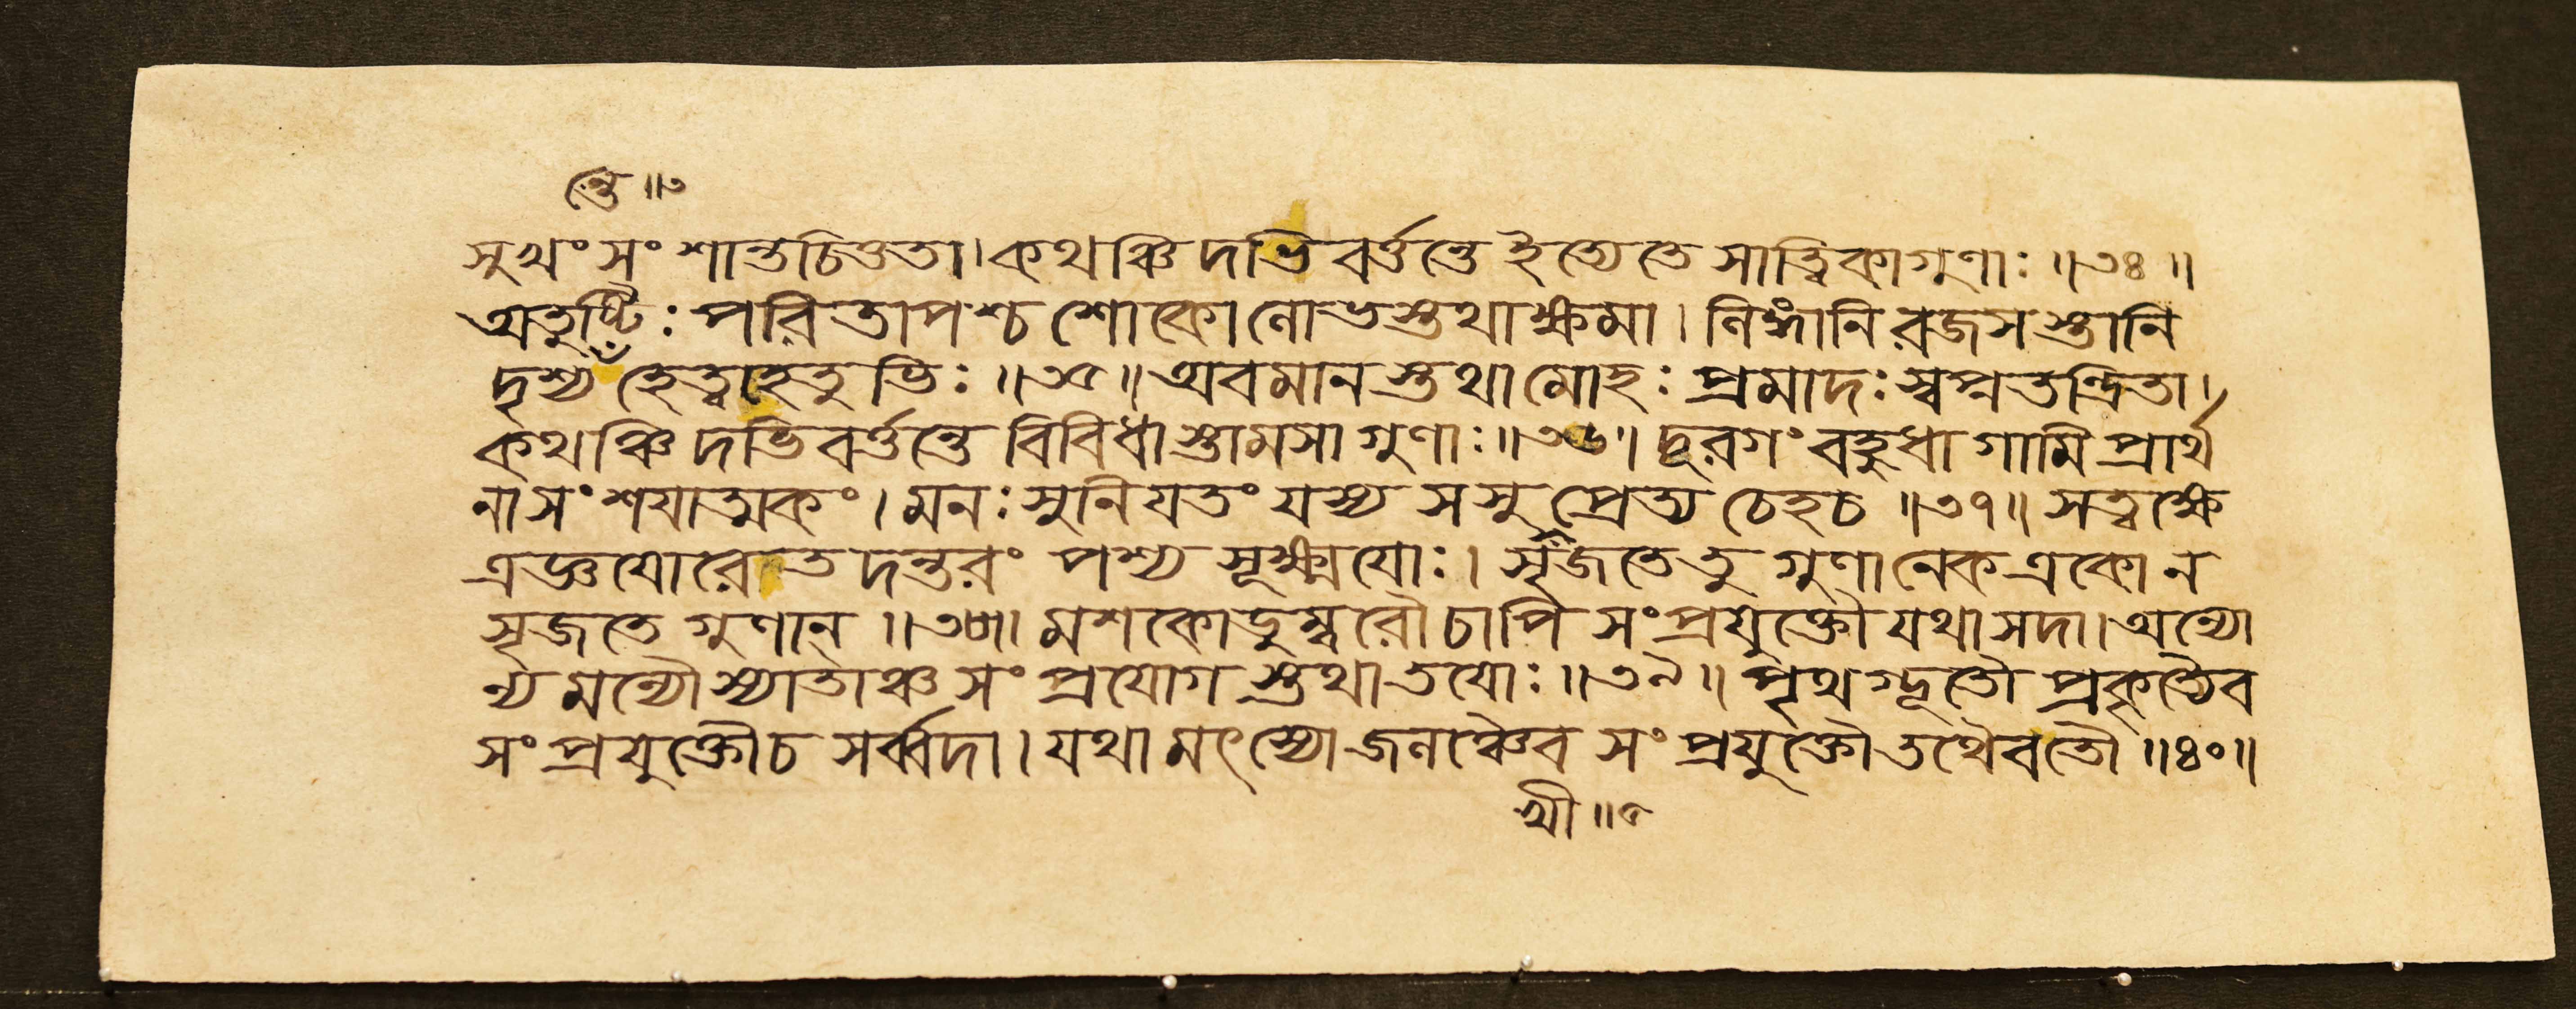 ন্তে ॥৩
সুখং সংশান্তচিত্ততা। কথঞ্চিদভিবর্ত্তন্তে ইত্যেতে সাত্ত্বিকাগুণাঃ ॥৩৪॥
অতুষ্টিঃ পরিতাপশ্চ শোকোলোভস্তথাক্ষমা। লিঙ্গানি রজসস্তানি
দৃশ্যন্তে হেত্বাহতুভিঃ ॥৩৫॥ অবমানস্তথামোহঃ প্রমাদঃ স্বপ্নতন্দ্রিতা।
কথঞ্চিদভিবর্ত্তন্তে বিবিধাস্তামসা গুণাঃ ॥৩৬॥ দূরগং বহুধাগামি প্রার্থ
নাসংশয়াত্মকং। মনঃ সুনিযতং যস্য স সু প্রেত্য চেহ চ ॥৩৭॥ সত্ত্বক্ষে
ত্রজ্ঞযোরেতদন্তরং পশ্য সূক্ষ্মযোঃ। সৃজতে তু গুণানেক একো ন
সৃজতে গুণান্ ॥৩৮॥ মশকোডুম্বরৌ চাপি সংপ্রযুক্তৌ যথা সদা। অন্যো
ন্যমন্যৌ স্যাতাঞ্চ সংপ্রযোগস্তথা তযোঃ ॥৩৯॥ পৃথগ্ভূতৌ প্রকৃত্যৈব
সংপ্রযুক্তৌ চ সর্ব্বদা। যথা মৎস্যো জলঞ্চৈব সংপ্রযুক্তৌ তথৈব তৌ ॥৪০॥
খী ॥৫